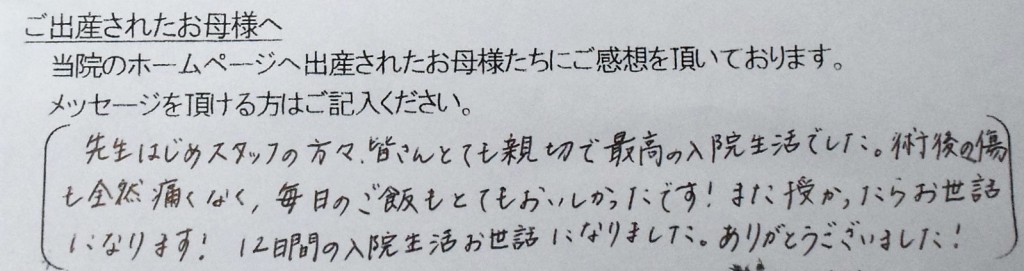 ご出産されたお母様へ
当院のホームページへ出産されたお母様たちにご感想を頂いております。
メッセージを頂ける方はご記入ください。
先生はじめスタッフの方々、皆さんとても親切で最高の入院生活でした。術後の傷
も全然痛くなく、毎日のご飯もとてもおいしかったです！また授かったらお世話
になります！ 12日間の入院生活お世話になりました。ありがとうございました！